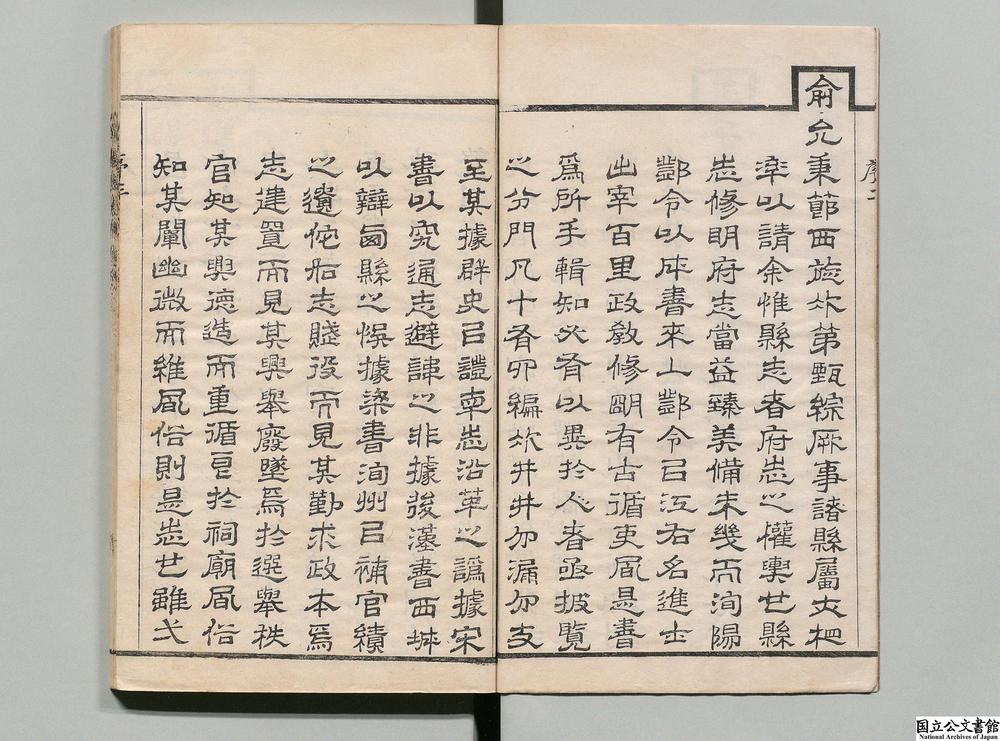 序二
俞允秉節西旋次第甄綜厥事諸縣屬交相
率以請余惟縣志者府志之權輿也縣
志修明府志當益臻美備未幾而洵陽
鄧令以成書來上鄧令以江右名進士
出宰百里政教修明有古循吏風是書
爲所手輯知必有以異於人者亟披覽
之分門凡十有四編次井井勿漏勿支
至其據群史以證輿志沿革之譌據宋
書以究通志避諱之非據後漢書西城
以辯鹵縣之悞據梁書洵州以補官績
之遺佗若志賦役而見其勤求政本焉
志建置而見其興舉廢墜焉於選舉秩
官知其興德造而重循良於祠廟風俗
知其闡幽微而維風俗則是志也雖弌
序三
国立公文書館
National Archives of Japan